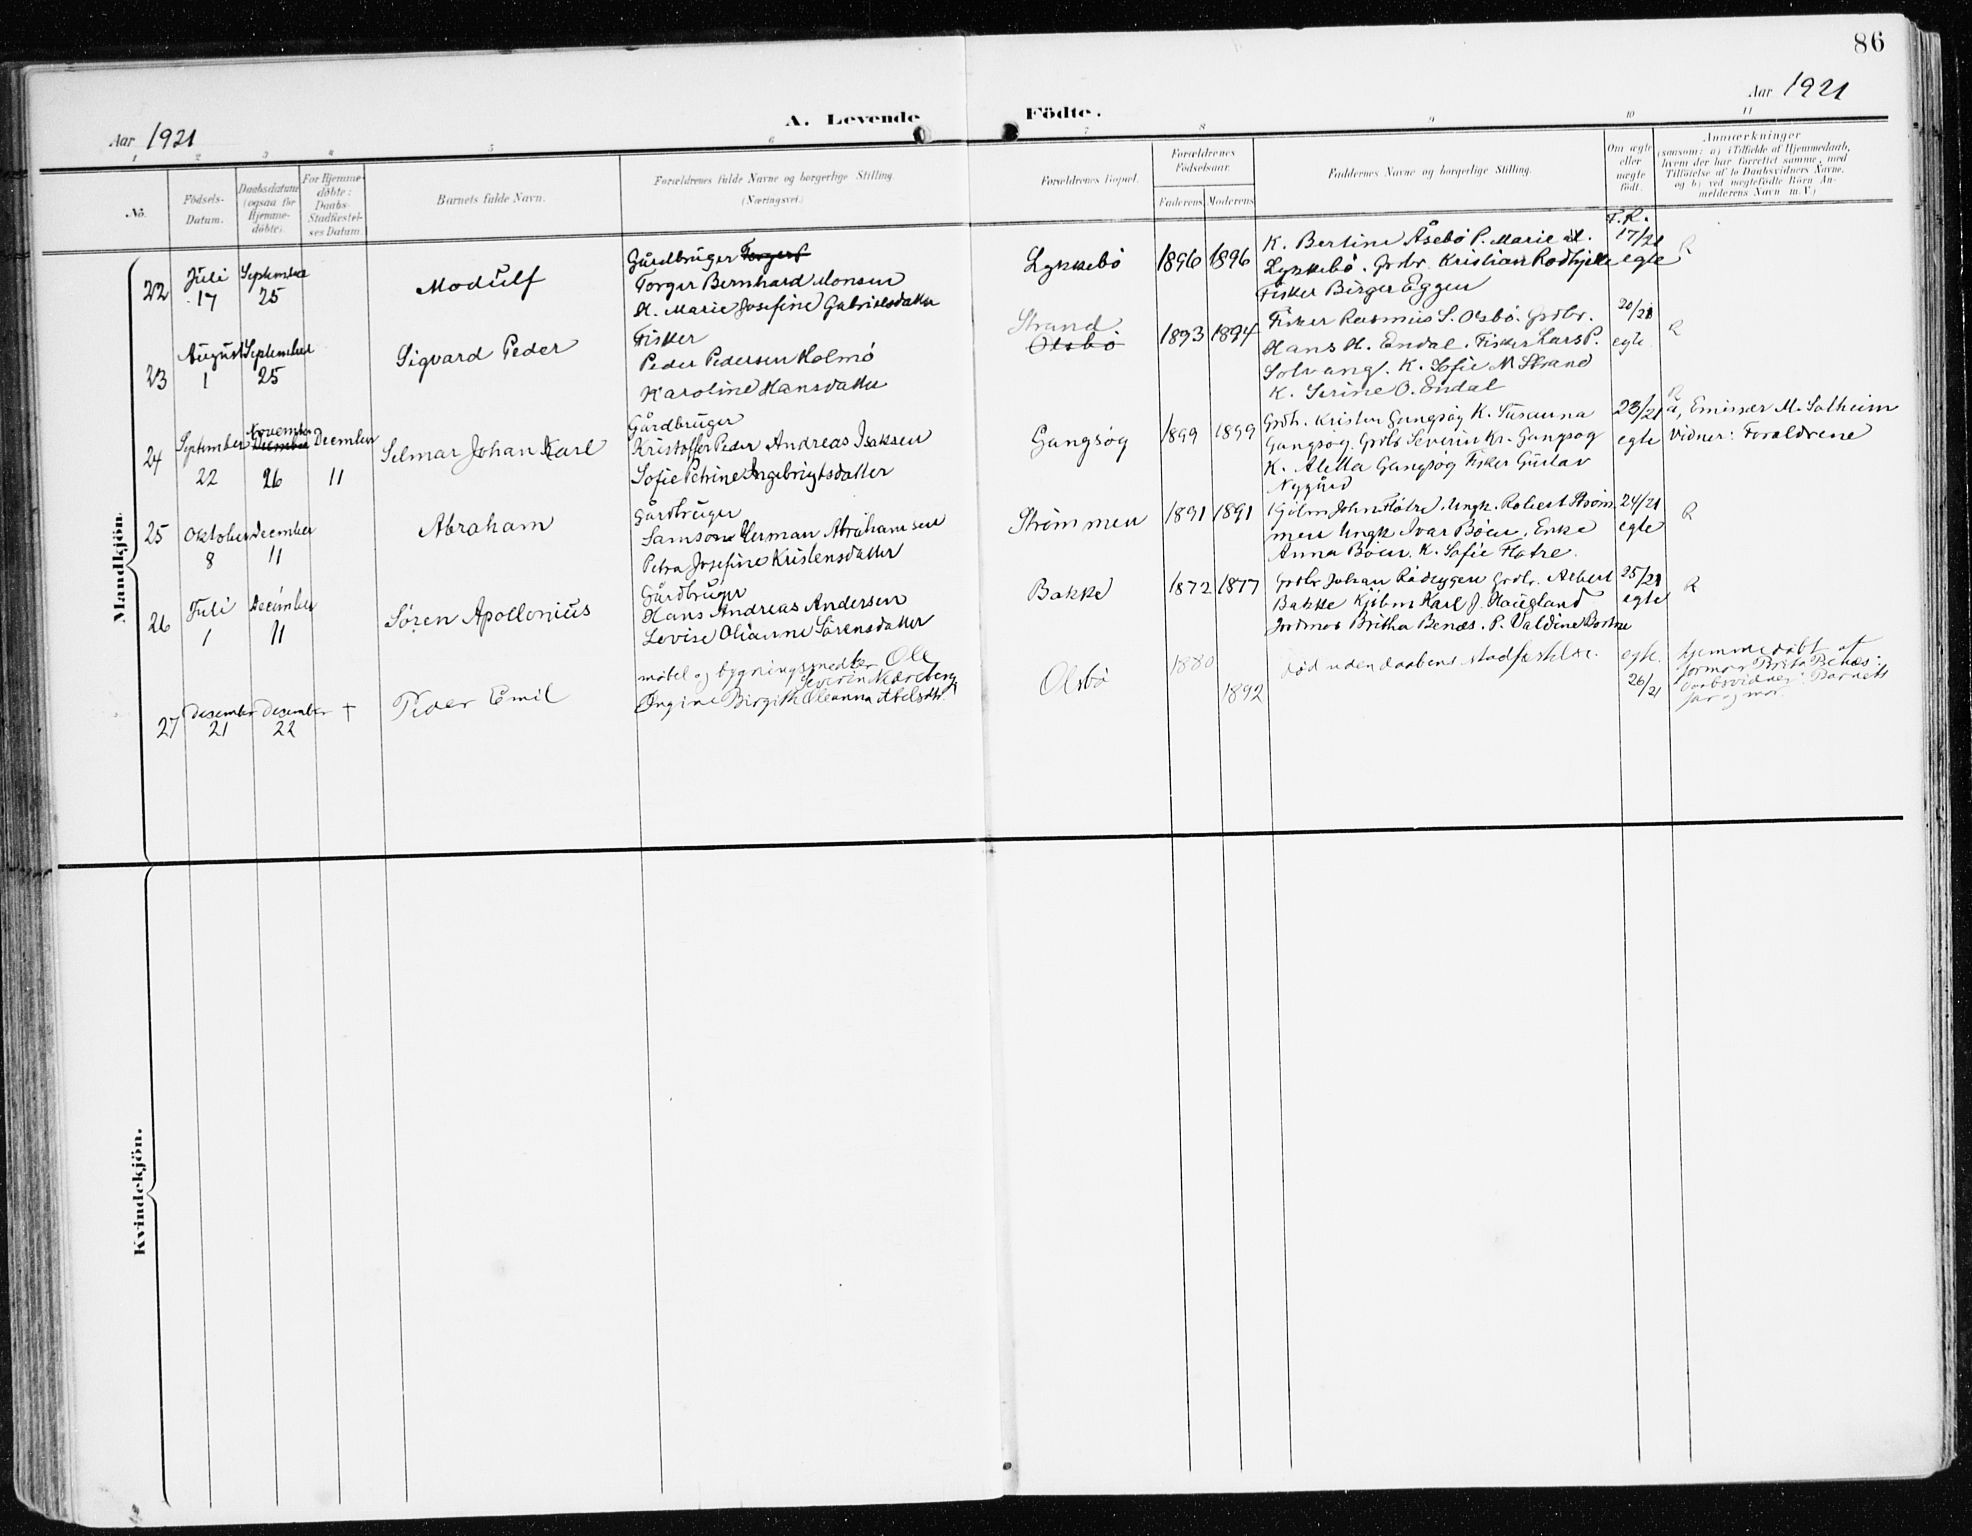 86
Aar 1921
A. Levende Födte.
Aar 1921
1 2 3 4 5 6 7 8 9 10 11
No.
Födsels-Datum.
Daabsdatum (ogsaa for Hjemme-döbte).
For Hjemme-döbte: Daabs-Stadfæstel-ses Datum.
Barnets fulde Navn.
Forældrenes fulde Navne og borgerlige Stilling.
(Næringsvei.)
Forældrenes Bopæl.
Forældrenes Födselsaar.
Faderens Moderens
Faddernes Navne og borgerlige Stilling.
Om ægte eller uægte födt.
Anmærkninger
(saasom: a) i Tilfælde af Hjemmedaab,
hvem der har forrettet samme, med
Tilföielse af to Daabsvidners Navne,
og b) ved uægtefödte Börn An-
melderens Navn m. V.)
Mandkjön.
22 Juli 17 September 25 Modulf
Gårdbruger Torgers
Torger Bernhard Monsen
H. Marie Josefine Gabrielsdatter
Lykkebö 1896 1896
K. Bertine Åsebö P. Marie
Lykkebö. Grdbr. Kristian Rodhjelle
Fisker Birger Eggen
F.R. 17/21 egte R
23 August 1 September 25 Sigvard Peder
Fisker
Peder Pedersen Holmö
Karoline Hansdatter
Strand
Olsbö
1893 1894
Fisker Rasmus S. Olsbö. Grdbr.
Hans H. Endal. Fisker Lars P.
Solvang. K. Sofie N Strand
K. Serine O. Endal
20/21 egte R
24 September 22 November December 26 December 11 Selmar Johan Karl
Gårdbruger
Kristoffer Peder Andreas Isaksen
Sofie Petrine Ingebrigtsdatter
Gangsøy 1899 1899
Grdb. Kristen Gangsøy K. Susanna
Gangsøy. Grdb Severin Kr. Gangsøy
K. Aletta Gangsøy Fisker Gustav
Nygård
23/21 egte
R
a, Emissær M. Solheim
Vidner: Forældrene
25 Oktober 8 December 11 Abraham
Gårdbruger
Samson Herman Abrahamsen
Petra Josefine Kristensdatter
Strömmen 1891 1891
Kjölm John Flötre. Ungk. Robert Ström
men Ungk Ivar Böen. Enke
Anna Böen. K. Sofie Flotre.
24/21 egte R
26 Juli 1 December 11 Søren Apollonius
Gårdbruger
Hans Andreas Andersen
Lovise Olianne Sörensdatter
Bakke 1872 1877
Grdbr Johan Rådeggen Grdbr. Albert
Bakke Kjölm Karl J. Haugland
Jordmor Britha Benæs. P. Valdine
25/21 egte R
27 Desember 21 Desember 22 + Peder Emil
møbel og bygningsmedker Ole
Severin Næreberg
Ongine Birgith Oleanna Abelsdtr.
Olsbö 1880 1892
död uden daabens stadfæstelse.
egte. 26/21
hjemmedøbt af
jormor Brita Benæs.
Daabsvidner: Barnets
far og mor.
Kvindekjön.